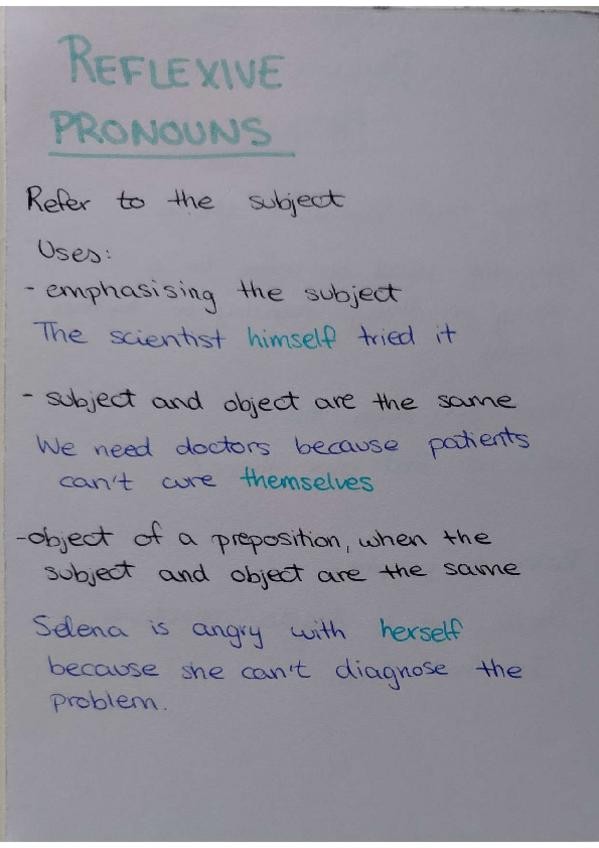 REFLEXIVE
PRONOUNS
Refer to the subject
Uses:
- emphasising the subject
The scientist himself tried it
- subject and object are the same
We need doctors because patients
can't cure themselves
-object of a preposition, when the
subject and object are the same
Selena is angry with herself
because she can't diagnose the
problem.